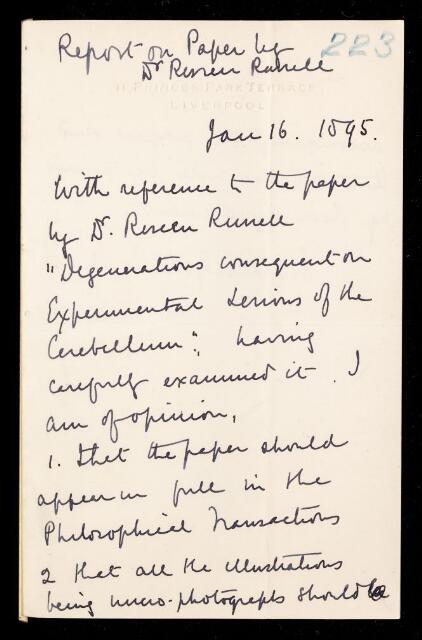 Report on Paper by
Dr Risien Russell
223
11, PRINCES PARK TERRACE
LIVERPOOL
Jan 16. 1895.
With reference to the paper
by Dr. Risien Russell
"Degenerations consequent on
Experimental Lesions of the
Cerebellum", having
carefully examined it. I
am of opinion,
1. that the paper should
appear in full in the
Philosophical Transactions
2 that all the illustrations
being micro-photographs should be